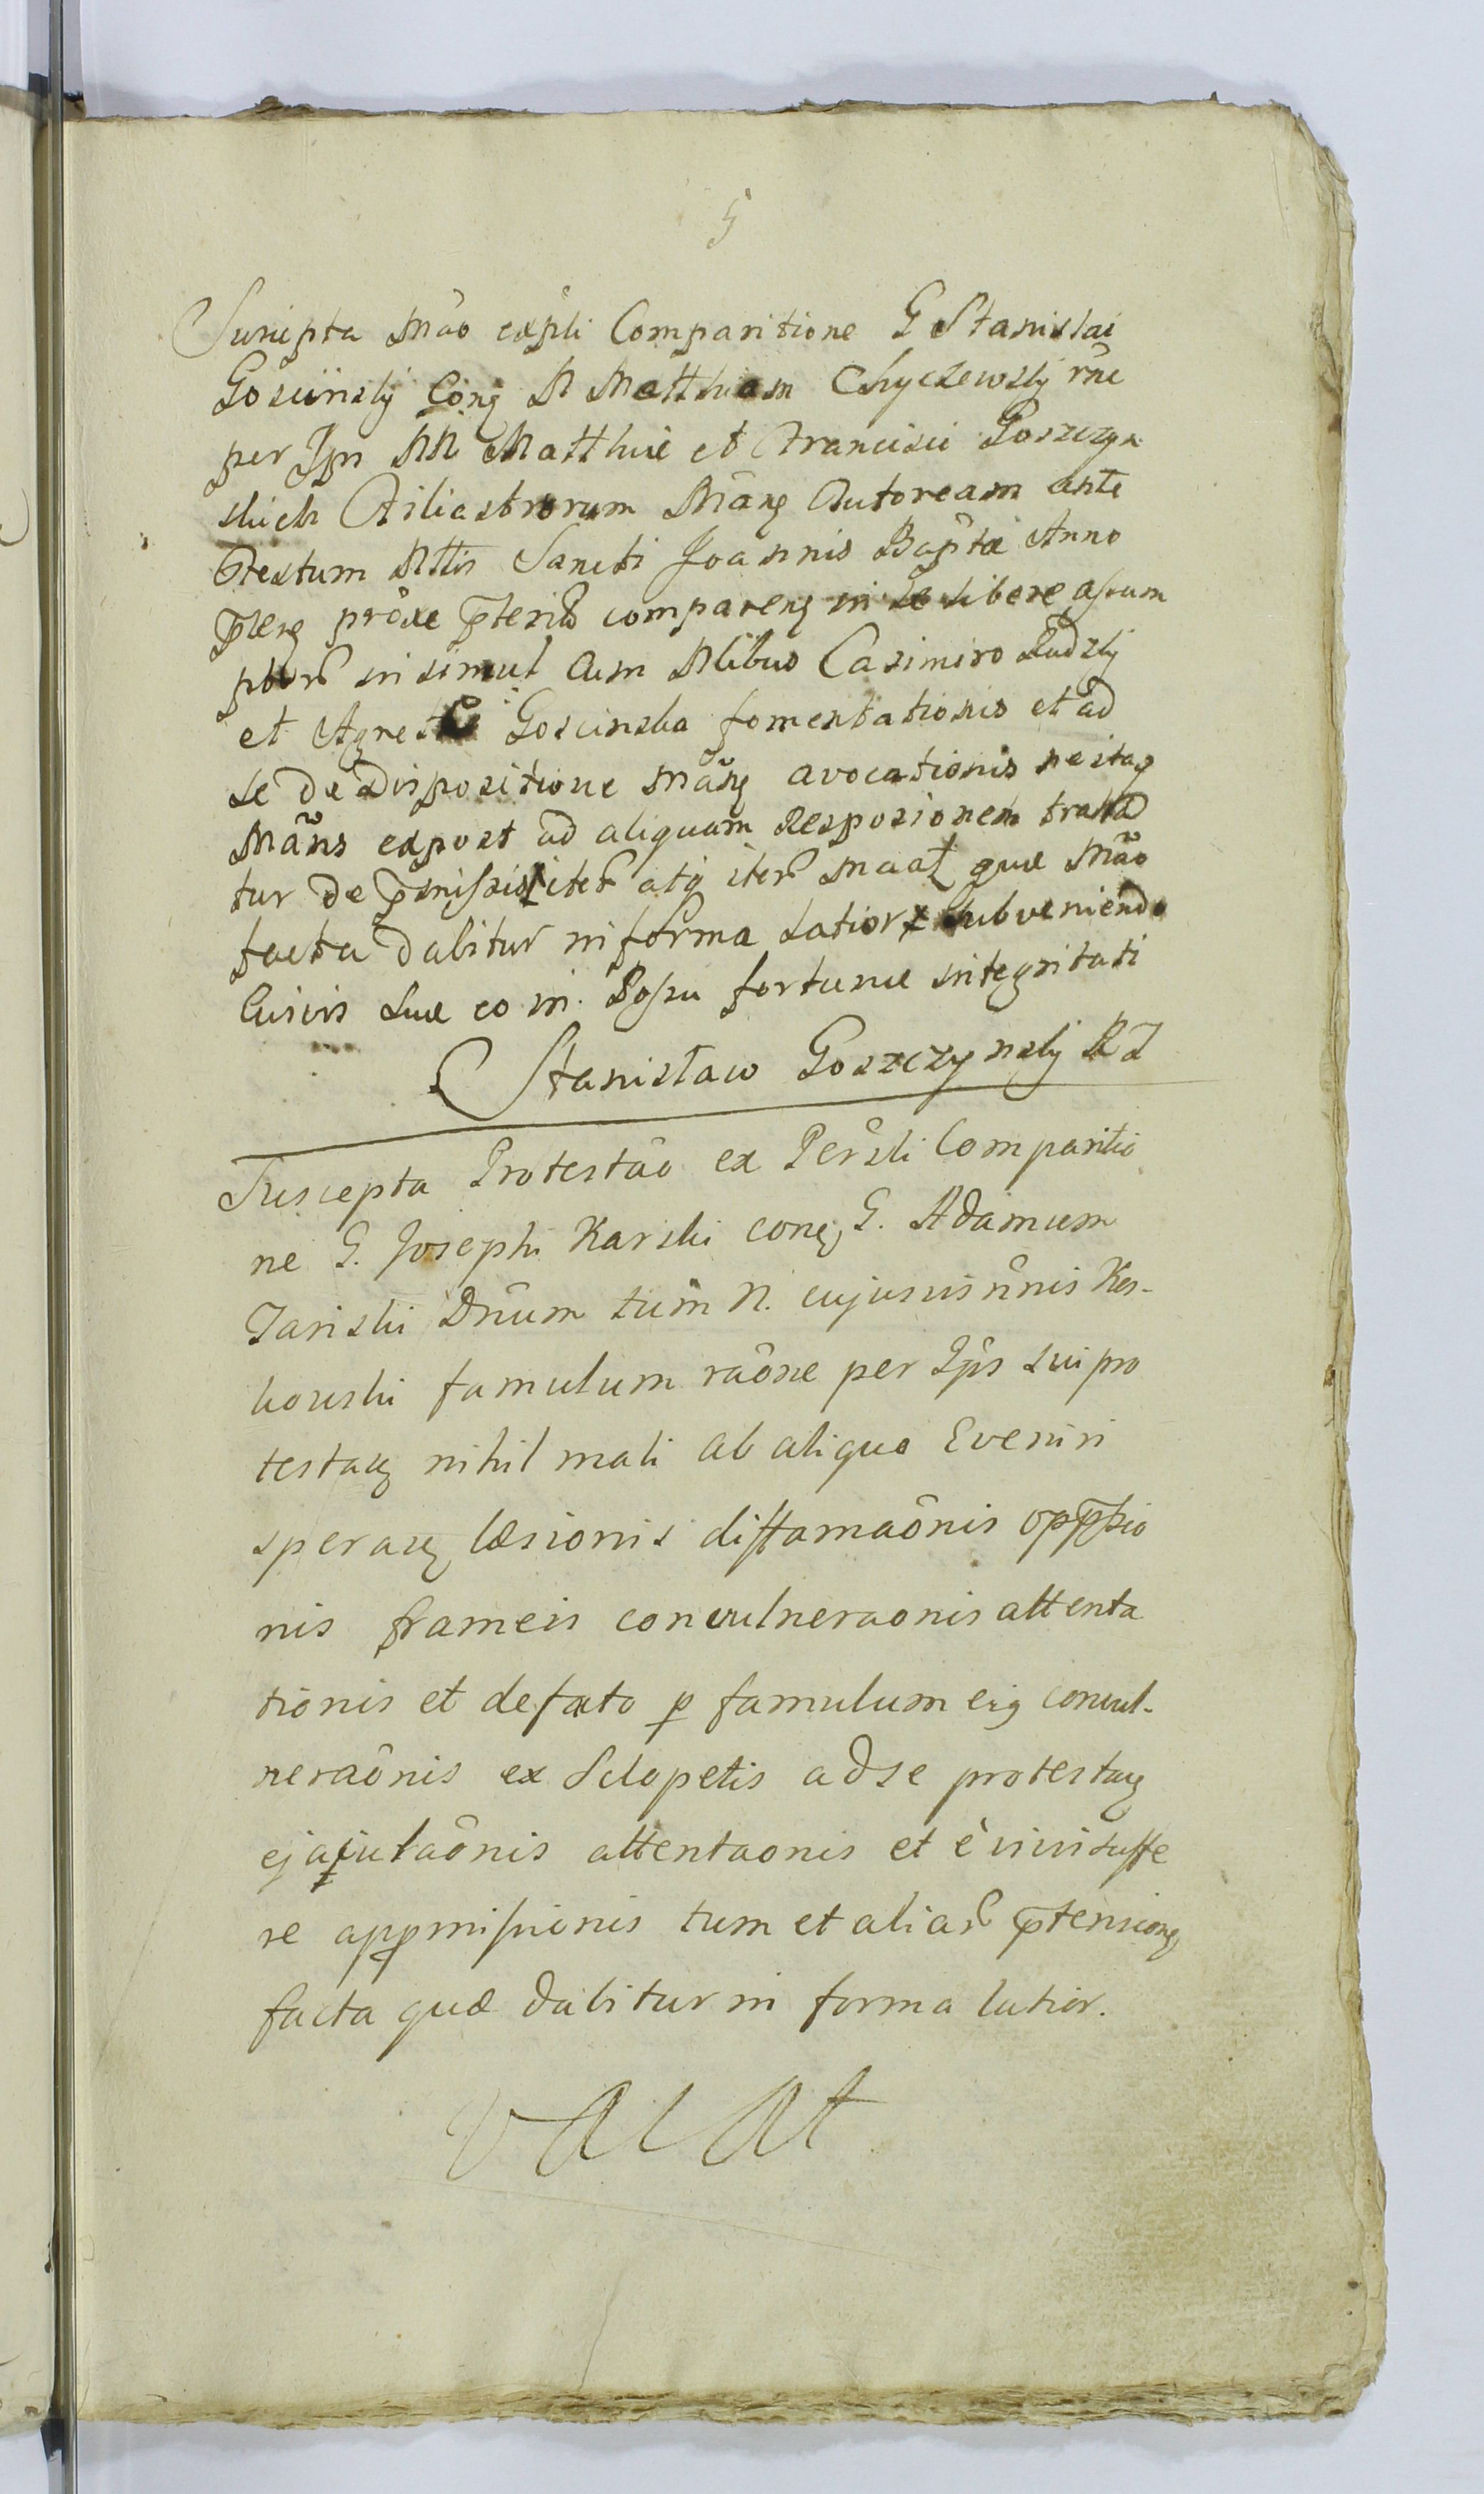 5
Suscepta Mâo expsli Comparitione G Stanislai
Gosciinskÿ Conq N Matthiam Chyczewskÿ rñe
per Ips NN Matthiæ et Francisci Goszczyn
skich Filiastrorum Mâng Autoream ante
Festum Nttis Sancti Joannis Baptæ Anno
p̄lenq prôxe p̄terito comparenq in se libere assum
ptorũ in simul cum Nlibus Casimiro Rudskÿ
et Agnes Goscinska fomentationis et ad
se de Dispositione Mânq avocationis ne itaq
Mãns expost ad aliquam Resposionem traha
tur de p̄missis iterũ atq iterũ maat quæ Mão
facta dabitur in forma latior subveniendo
Civis suæ eo in Possu fortunæ integritati
Stanisław Goszczynskÿ RJ
Suscepta Protestâo ex Persli Comparitio
ne G. Josephi Karski conq G. Adamum
Jariski Dnum tum N. cujusvis nnis Kos-
kowski famulum raône per Ips sui pro
testanq nihil mali ab aliquo Eveniri
speranq læsionis diffamaônis opp̄ssio
nis frameis convulneraonis attenta
tionis et defacto p famulum eiq convul-
neraônis ex Sclopetis ad se protestanq
ejaculaônis attentaonis et è vivis tuffe
re appmissionis tum et aliarũ p̄tensionq
facta quæ dabitur in forma latior.
Vacat